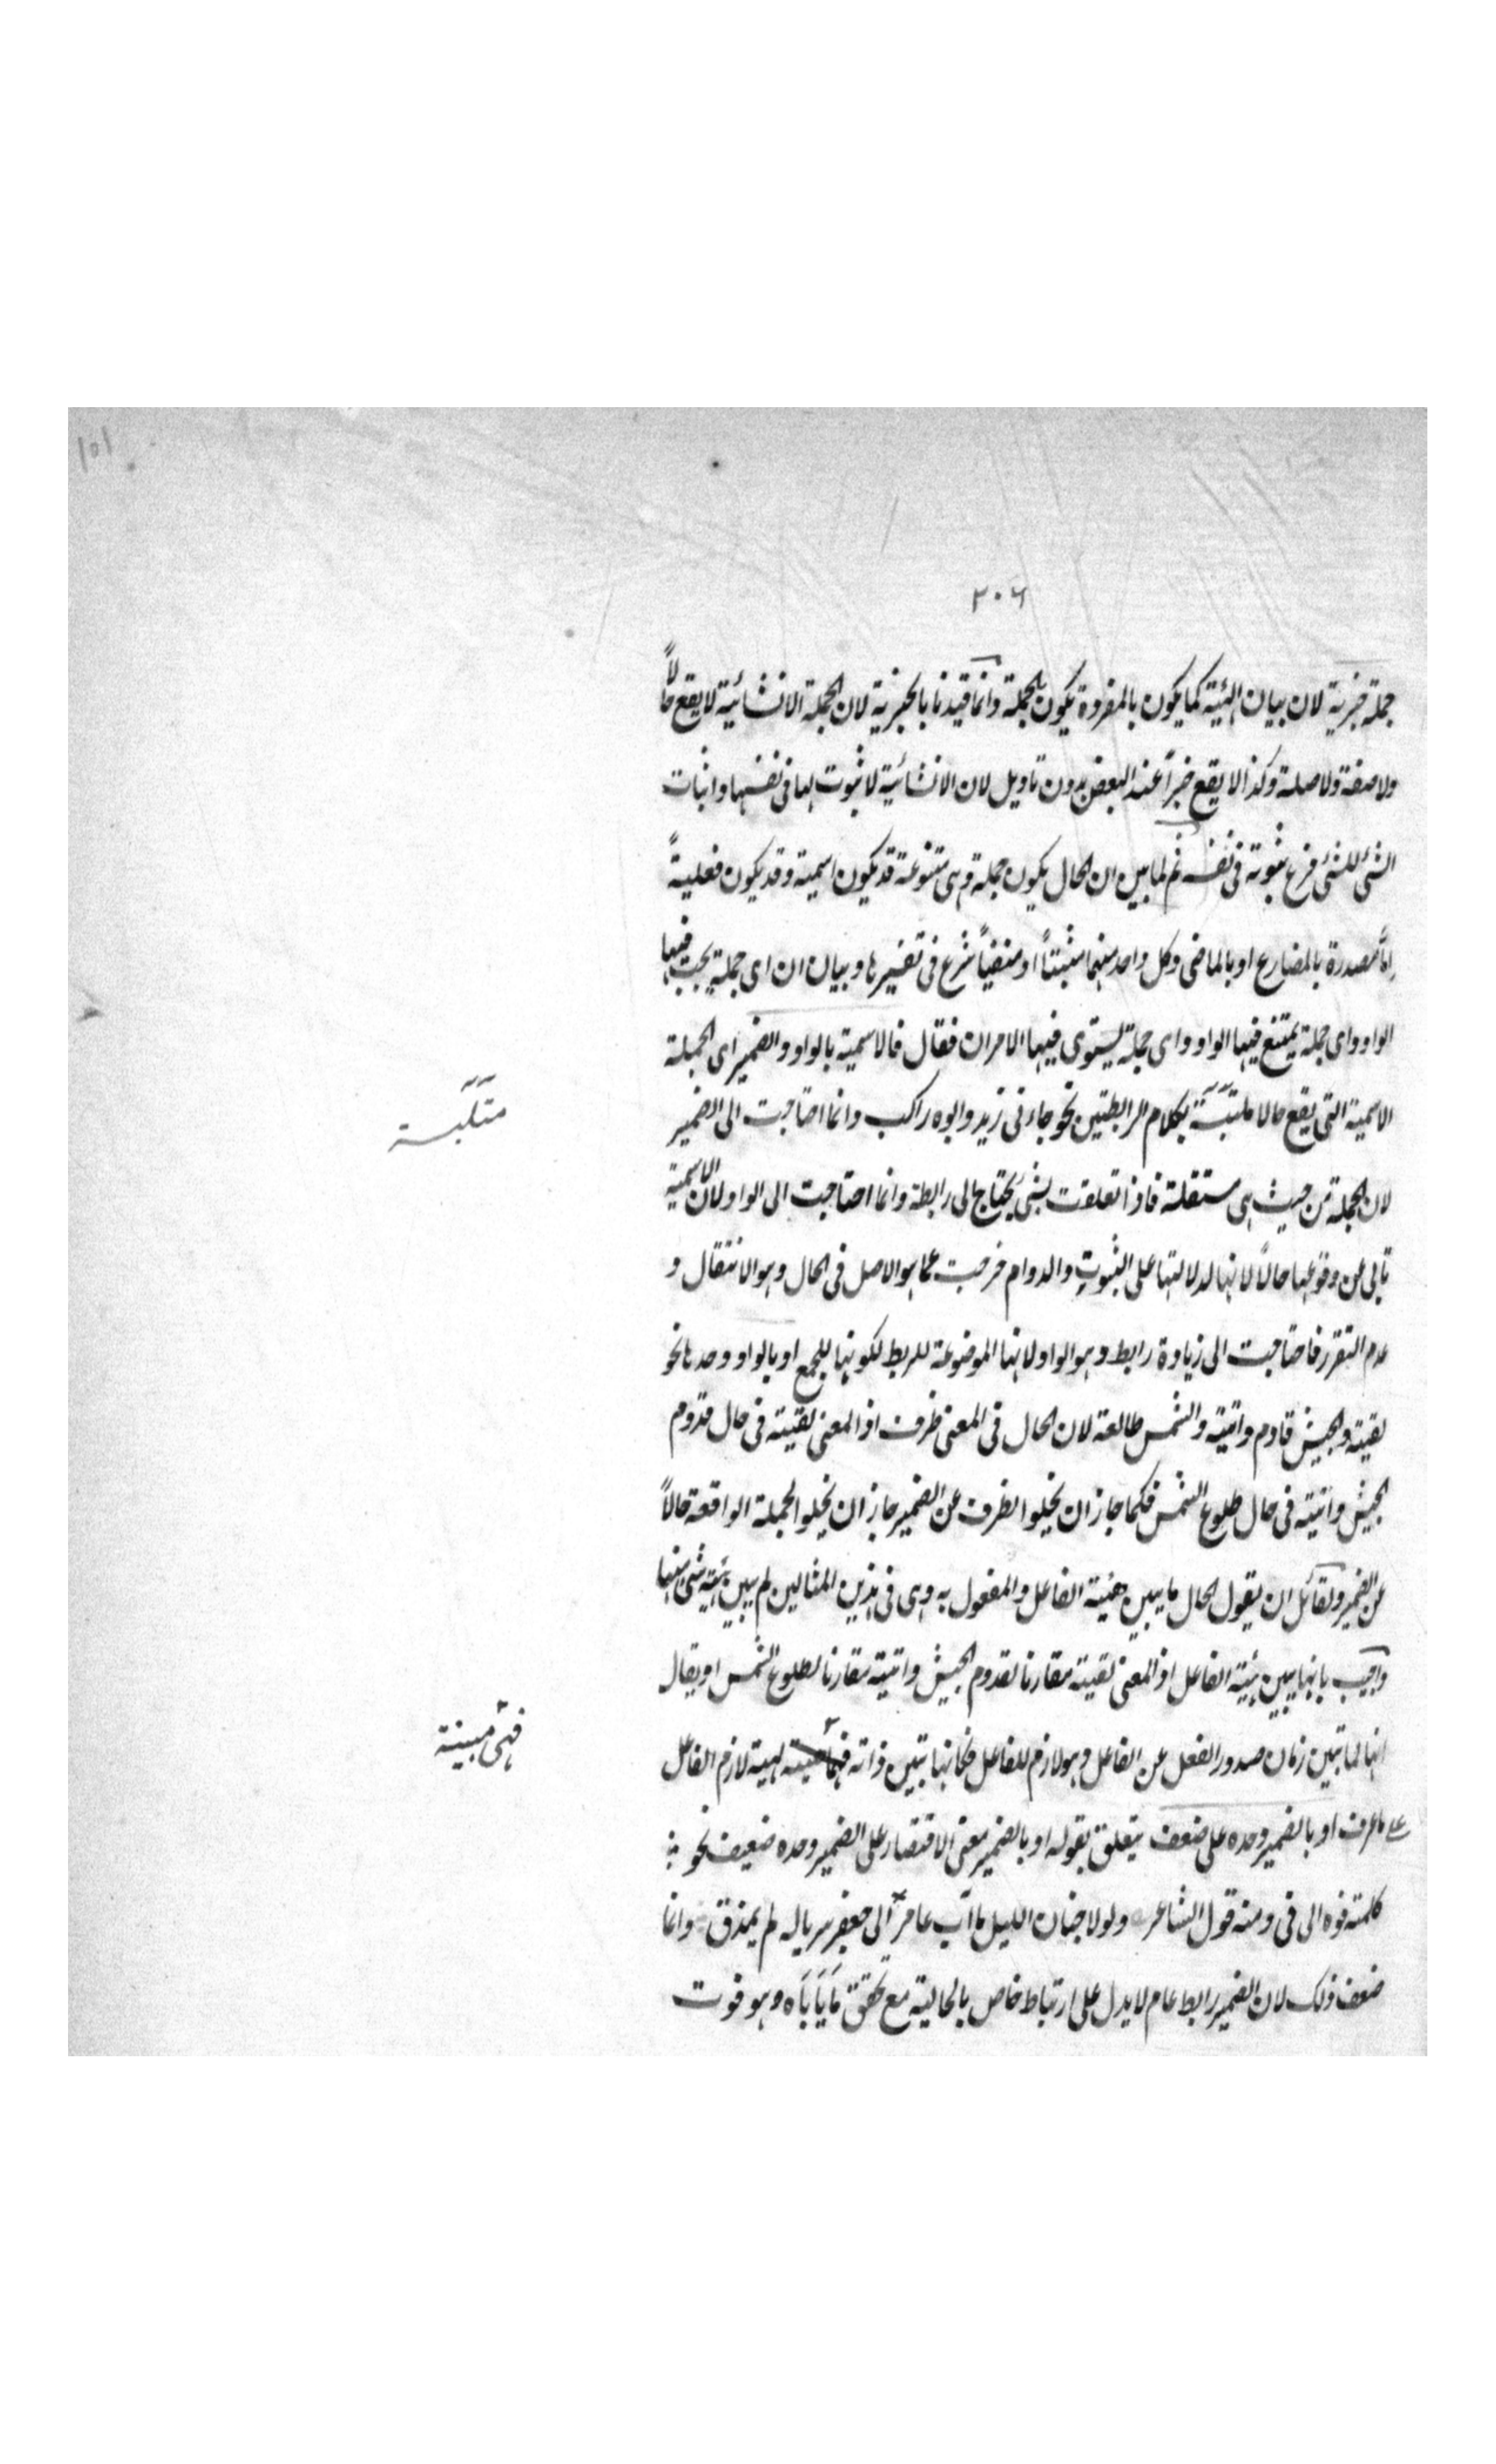 ١٥١
٢٠٦
جملة خبرية لان بيان الهيئة كما يكون بالمفردة يكون بالجملة وانما قيدنا بالخبرية لان الجملة الانشائية لا يقع حالاً
ولا صفة ولا صلة وكذا لا يقع خبراً عند البعض بدون تاويل لان الانشائية لا ثبوت لها فى نفسها واثبات
الشئ للشئ فرع ثبوته فى نفسه ثم لما بين ان الحال يكون جملة وهى متنوعة قد يكون اسمية وقد يكون فعلية
إمّا مصدرة بالمضارع او بالماضى وكل واحد منهما مثبتاً او منفياً شرع فى تفسيرها وبيان ان اى جملة يجب فيها
الواو واى جملة يمتنع فيها الواو واى جملة يستوى فيها الامران فقال فالاسمية بالواو والضمير اى الجملة
الاسمية التى يقع حالا ملتبسة بكلام الرابطتين نحو جاءنى زيد وابوه راكب وانما احتاجت الى الضمير
متلبسة
لان الجملة من حيث هى مستقلة فاذا تعلقت بشئ يحتاج الى رابطة وانما احتاجت الى الواو لان الاسمية
تابى عن وقوعها حالاً لانها لدلالتها على الثبوت والدوام خرجت عما هو الاصل فى الحال وهو الانتقال و
عدم التقرر فاحتاجت الى زيادة رابط وهو الواو لانها الموضوعة للربط لكونها للجمع او بالواو وحدها نحو
لقيته والجيش قادم واتيته والشمس طالعة لان الحال فى المعنى ظرف اذ المعنى لقيته فى حال قدوم
الجيش واتيته فى حال طلوع الشمس فكما جاز ان يخلوا لظرف عن الضمير جاز ان يخلو الجملة الواقعة حالاً
عن الضمير ولقائل ان يقول الحال ما يبين هيئة الفاعل والمفعول به وهى فى هذين المثالين لم يبين هيئة شئ منها
واجيب بانها يبين هيئة الفاعل اذ المعنى لقيته مقارنا لقدوم الجيش واتيته مقارنا لطلوع الشمس او يقال
انها لما تبين زمان صدور الفعل عن الفاعل وهو لازم للفاعل فكانها تبين ذاته لهيئة لازم الفاعل
فهى مبينة
على ما عرف او بالضمير وحده على ضعف يتعلق بقوله او بالضمير معنى الاقتصار على الضمير وحده ضعيف نحو
كلمته فوه الى فى ومنه قول الشاعر ولولا جنان الليل ما آب عامر الى جعفر سرباله لم يمزق وانما
ضعف ذلك لان الضمير رابط عام لا يدل على ارتباط خاص بالحالية مع تحقق ما ياباه وهو فوت